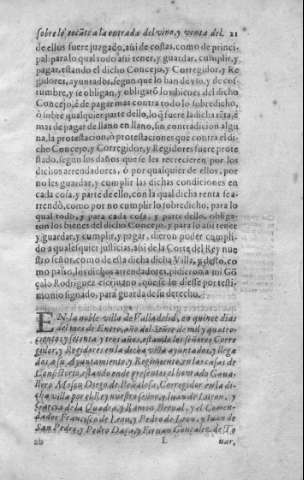 sobre lo tocãte a la entrada del vino, y venta del. 21
de ellos fuere juzgado, assi de costas, como de princi-
pal para lo qual todo assi tener, y guardar, cumplir, y
pagar, estando el dicho Concejo, y Corregidor, y Re
gidores, ayuntados, segun que lo han de vso, y de cos-
tumbre, y se obligan, y obligarõ los bienes del dicho
Concejo, è de pagar mas contra todo lo sobredicho,
ò sobre qualquier parte dello, lo q̃ fuere la dicha rẽta, è
mas de pagar de llano en llano, sin contradicion algu
na, la protestacion, ò protestaciones que contra el di-
cho Concejo, y Corregidor, y Regidores fuere prote
stado, segun los daños que se les recrecieren por los
dichos arrendadores, ò por qualquier de ellos, por
no les guardar, y cumplir las dichas condiciones en
cada cosa, y parte de ello, con la qual dicha renta se a-
rrendò, como por no cumplir lo sobredicho, para lo
qual todo, y para cada cosa, y parte dello, obliga-
ron los bienes del dicho Concejo, y para lo assi tener
y guardar, y cumplir, y pagar, dieron poder cumpli-
do a qualesquier justicias, assi de la Corte del Rey nue
stro señor, como de esta dicha dicha Villa, y desto, co
mo passo, los dichos arrendadores, pidieron a mi Gõ
çalo Rodriguez escriuano, que se lo diesse por testi-
monio signado, para guarda de su derecho.
EN la noble villa de Valladolid, en quinze dias
del mes de Enero, año del Señor de mil y quatro
cientos y setenta y tres años, estando los señores Corre
gidor, y Regidores en la dicha villa ayuntados, y llega
dos, a su Ayuntamiento, y Regimiento, en las casas de
Consistorio, estando ende presentes el honrado Caua-
llero Mosen Diego de Bobadilla, Corregidor en la di-
cha villa por el Rey nuestro señor, y Juan de
de la Quadra, y Ramiro Bernal, y el Comen-
dador Francisco de Leon, y Pedro de Leon, y Juan de
San Pedro, y Pedro Dasa, y Estuan Gonçalez, de
L uar,